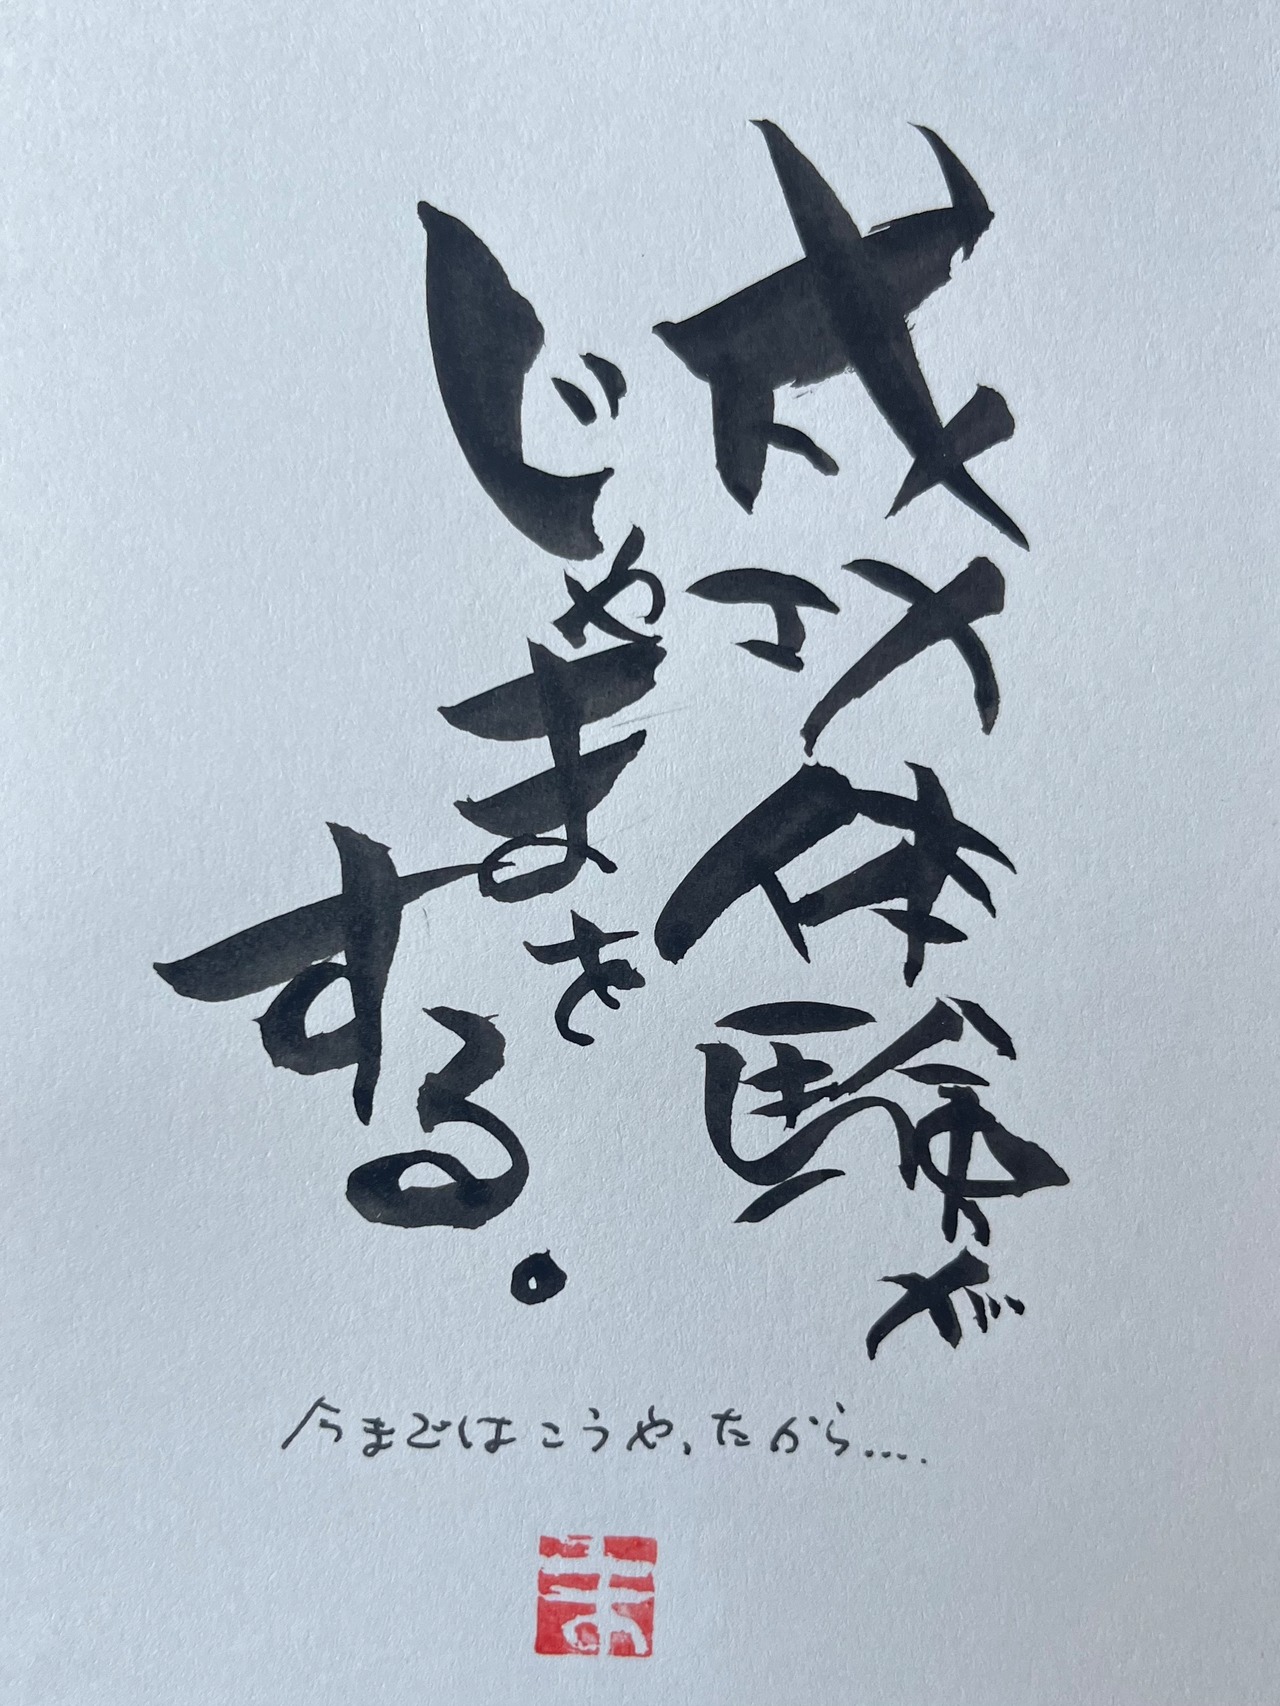 成功体験が
じゃまを
する。
今まではこうや、たから....
ま